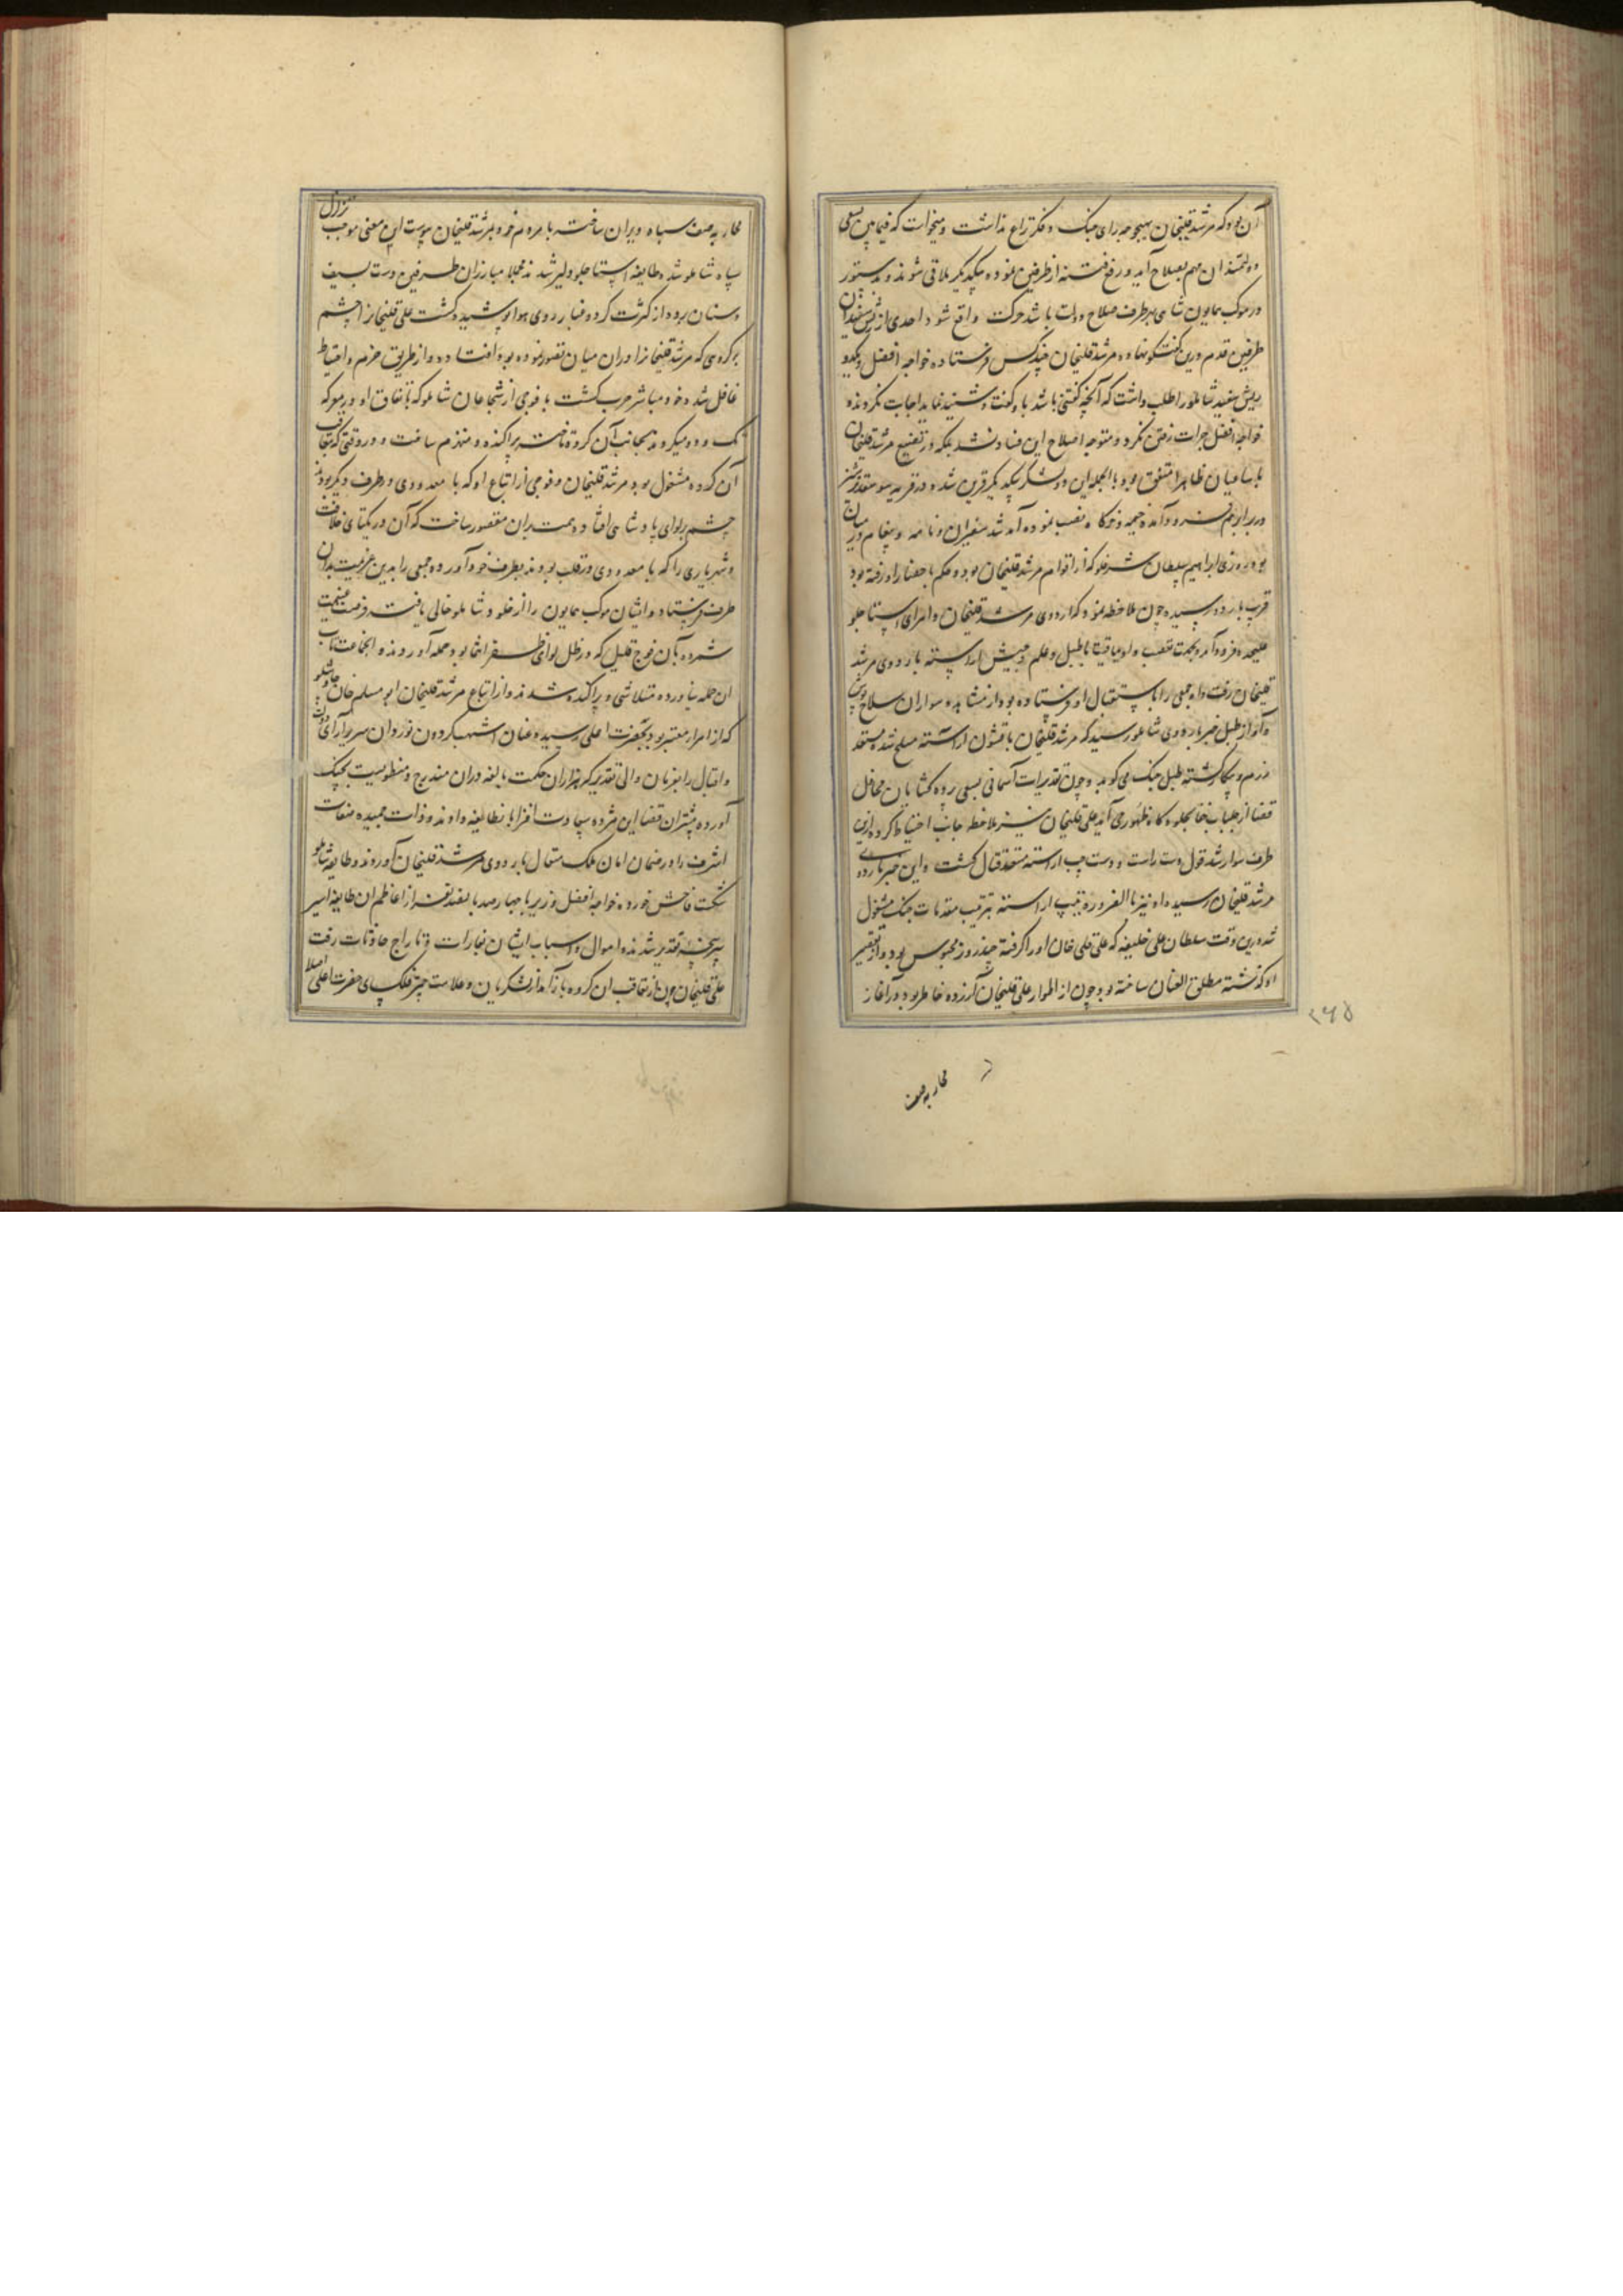 آن بود که مرشد قلیخان بهیچوجه رای جنک و فکر نزاع نداشت و میخواست که فیمابین بسعی
دولتمندان مهم بصلاح آید و رفع فتنه از طرفین نموده بیکدیکر ملاقی شوند و بدستور
در موکب همایون شاهی بهر طرف صلاح دولت باشد حرکت واقع شود احدی از ریش سفیدان
طرفین قدم درین کفتکو نهاده مرشد قلیخان چند کس فرستاده خواجه افضل و یکدو
ریش سفید شاملو را طلب داشت که آنچه کفتنی باشد باو کفت و شنید نماید اجابت نکردند
خواجه افضل جرات رفتن نکرد و متوجه اصلاح این فساد نشد بلکه در مرشد قلیخان
با ساعیان ظاهرا متفق بود بالجمله این دو لشکر بیکدیکر قرین شده در قریه سوسفد
در برابر هم فرود آمده خیمه و خرکاه نصب نموده آمد شد سفیران و نامه و پیغام در میان
بود روزی ابراهیم سلطان که از اقوام مرشد قلیخان بود و حکم باحضار او رفته بود
قریب باردو رسیده چون ملاحظه نمود که اردوی مرشد قلیخان و امرای استاجلو
علیحده فرود آمده بجهت تعصب و اویماقیت با طبل و علم و جیش آراسته باردوی مرشد
قلیخان رفت و او جمعی را باستقبال او فرستاده بود از مشاهده سواران سلاح پوش
و آواز طبل خبر باردوی شاملو رسید که مرشد قلیخان با قشون آراسته مسلح شده مستعد
رزم و پیکار کشته طبل جنک می کوبد و چون تقدیرات آسمانی بسعی پرده کشایان محافل
قضا از جلباب خفا بجلوه کاه ظهور می آید علی قلیخان نیز ملاحظه جانب احتیاط کرده ازین
طرف سوار شد قول و دست راست و دست چپ آراسته مستعد قتال کشت و این خبر باردوی
مرشد قلیخان رسید و او نیز بالضروره تیپ آراسته بترتیب مقدمات جنک مشغول
شد درین وقت سلطان علی خلیفه که علی قلی خان او را کرفته چند روز محبوس بود و از تقصیر
او کذشته مطلق العنان ساخته بود چون از اطوار علی قلیخان آزرده خاطر بود در آغاز
محاربه صف
۲۶۵
محاربه صف سپاه ویران ساخته با مردم خود بمرشد قلیخان پیوست این معنی موجب تزلزل
سپاه شاملو شد و طایفه استاجلو دلیر شدند مجملا مبارزان طرفین دست بسیف
و سنان برده از کثرت کرد و غبار روی هوا پوشیده کشت علی قلیخان را چشم
بر کروهی که مرشد قلیخان را در آن میان تصور نموده بود افتاد و از طریق حزم و احتیاط
غافل شد و خود مباشر حرب کشت با فوجی از شجاعان شاملو که باتفاق او در معرکه
تک و دو میکردند بجانب آن کروه تاخت پراکنده و منهزم ساخت و در وقتی که بتعاقب
آن کروه مشغول بود مرشد قلیخان و فوجی از اتباع او که با معدودی در طرف دیکر بودند
چشم بر لوای پادشاهی افتاد و همت بران مقصور ساخت که آن در یکتای خلافت
و شهریاری را که با معدودی در قلب بودند بطرف خود آورده جمعی را بدین عزیمت بدان
طرف فرستاد و ایشان موکب همایون را از غلو شاملو خالی یافته فرصت غنیمت
شمرده بآن فوج قلیل که در ظل لوای ظفر انتما بود حمله آوردند و آن جماعت تاب
آن حمله نیاورده متلاشی و پراکنده شدند و از اتباع مرشد قلیخان ابو مسلم خان چاوشلو
که از امراء معتبر بود بحضرت اعلی رسیده عنان اشهب کردون نوردان سریر آرای دولت
و اقبال را بفرمان والی تقدیر که هزاران حکمت بالغه دران مندرج و منطویست بچنک
آورده مبشران قضا این مژده سعادت افزا بانطایفه دادند و ذات حمیده صفات
اشرف را در ضمان امان ملک متعال باردوی مرشد قلیخان آوردند و طایفه شاملو
شکست فاحش خورده خواجه افضل وزیر با چهارصد پانصد نفر از اعاظم آن طایفه اسیر
سرپنجه تقدیر شدند و اموال و اسباب ایشان بغارت و تاراج حادثات رفت
علی قلیخان چون از تعاقب آن کروه باز آمد از لشکریان و علامت چتر فلک سای حضرت اعلی اصلا